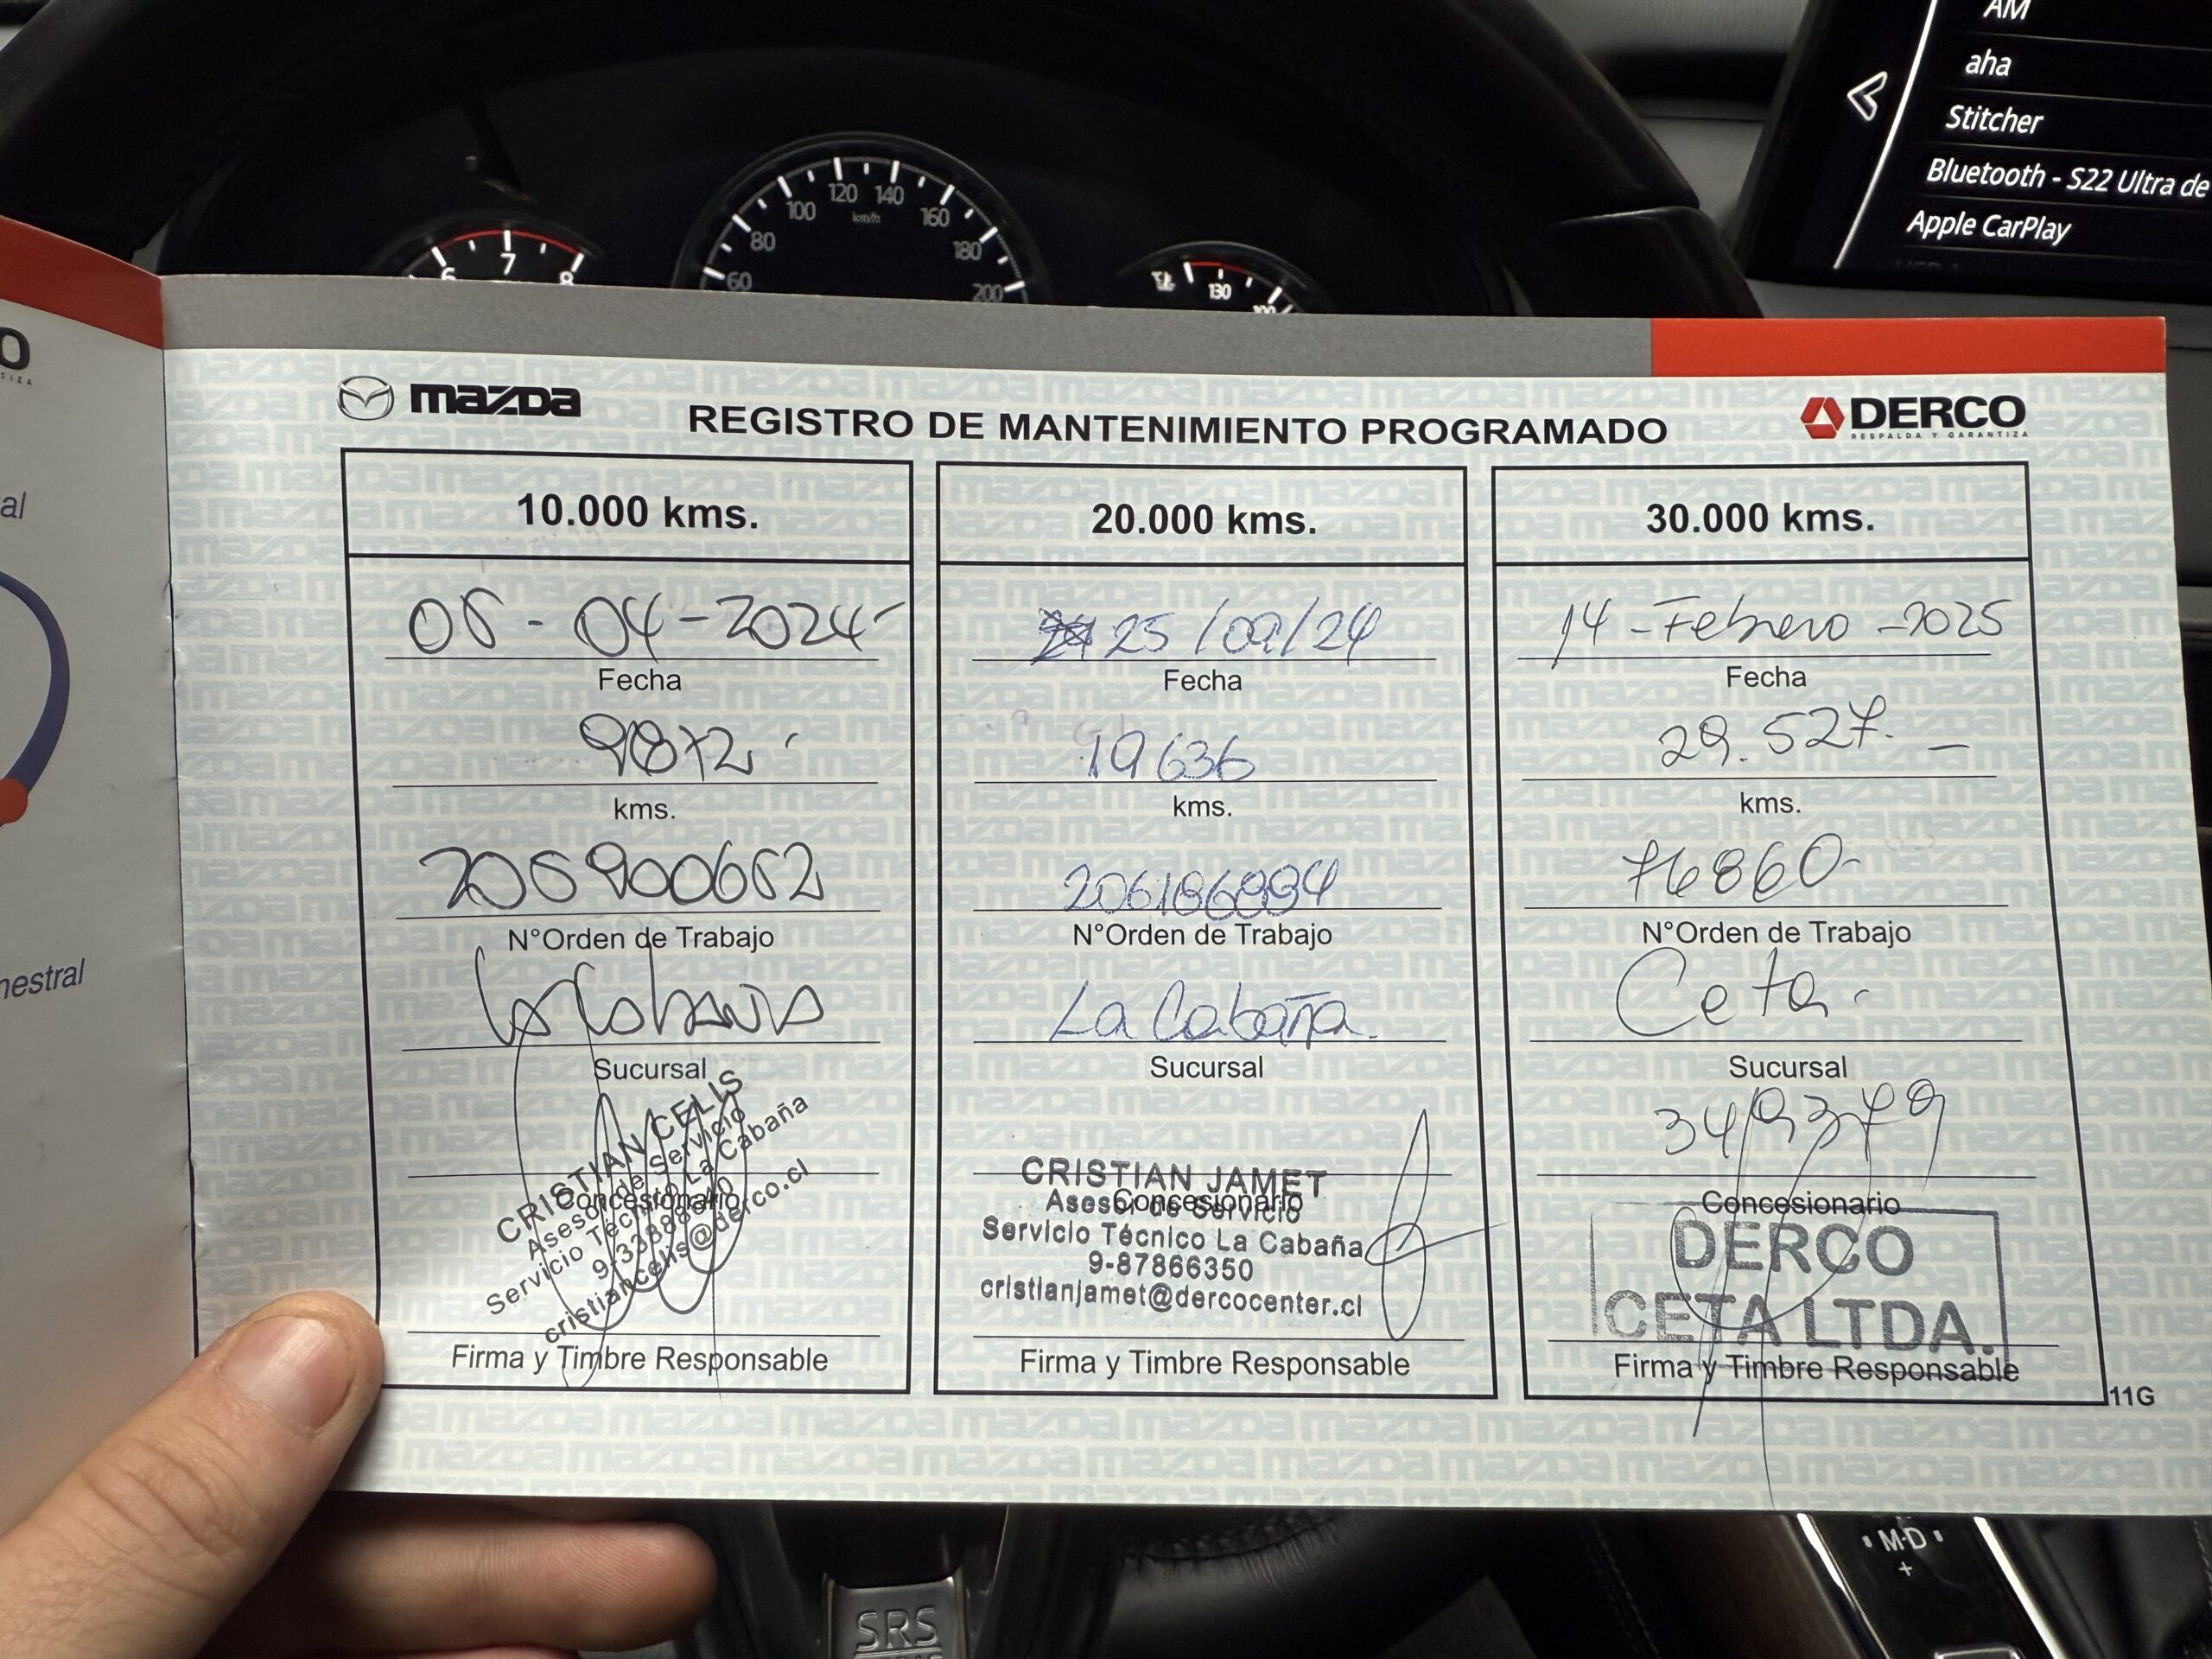 AM
aha
Stitcher
Bluetooth - S22 Ultra de
Apple CarPlay
6 7 8
60 80 100 120 140 160 180 200
km/h
130
mazda
REGISTRO DE MANTENIMIENTO PROGRAMADO
DERCO
RESPALDA Y GARANTIZA
al
mestral
10.000 kms.
04-2024
Fecha
9872
kms.
N°Orden de Trabajo
La Cabaña
Sucursal
CRISTIAN CELIS
Asesor de Servicio
Servicio Técnico La Cabaña
cristiancelis@derco.cl
Concesionario
Firma y Timbre Responsable
20.000 kms.
25/09/24
Fecha
19636
kms.
N°Orden de Trabajo
La Cabaña.
Sucursal
CRISTIAN JAMET
Concesionario
Asesor de Servicio
Servicio Técnico La Cabaña
9-87866350
cristianjamet@dercocenter.cl
Firma y Timbre Responsable
30.000 kms.
14-Febrero-2025
Fecha
29.527.-
kms.
76860-
N°Orden de Trabajo
Ceta-
Sucursal
349379
Concesionario
DERCO
CETA LTDA.
Firma y Timbre Responsable
11G
M-D
+
SRS